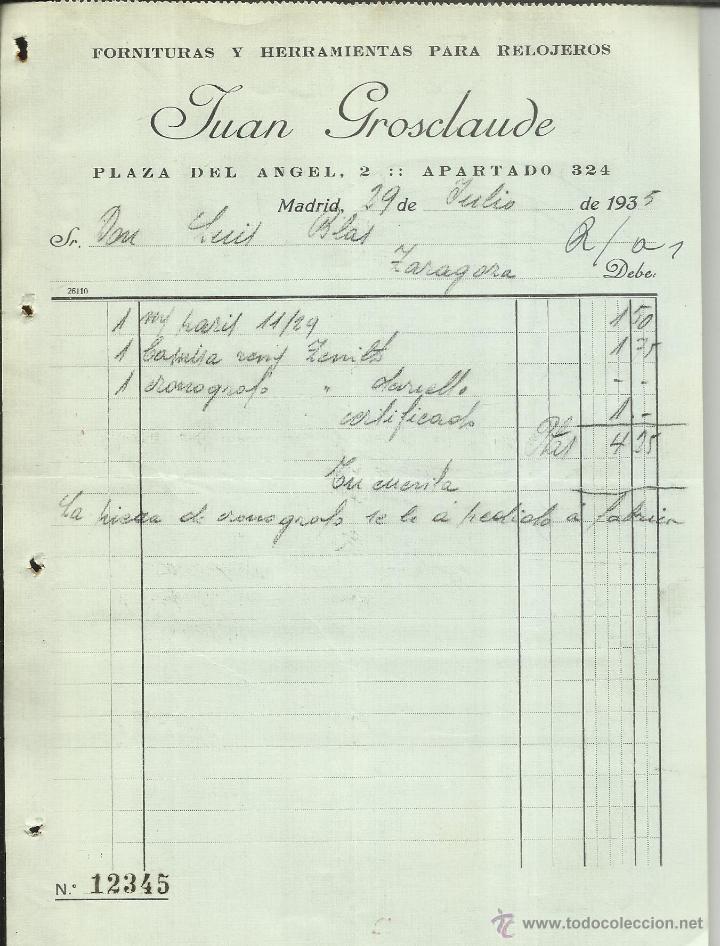 FORNITURAS Y HERRAMIENTAS PARA RELOJEROS
Juan Grosclaude
PLAZA DEL ANGEL, 2 :: APARTADO 324
Madrid, 29 de Julio de 1935
Sr. Don Luis Blas
Zaragoza
Debe:
26110
1 11/29 1 50
1 Zenith 1 75
1 cronografo " - -
certificado 1 -
Ptas 4 25
En cuenta
La pieza de cronografo se le a pedido á
N.º 12345
todocoleccion
www.todocoleccion.net